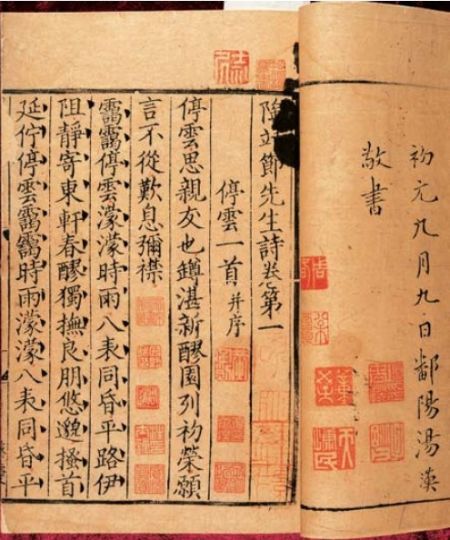 初元九月九日鄱陽湯漢
敬書
陶靖節先生詩卷第一
停雲一首并序
停雲思親友也罇湛新醪園列初榮願
言不從歎息彌襟
靄靄停雲濛濛時雨八表同昏平路伊
阻靜寄東軒春醪獨撫良朋悠邈搔首
延佇停雲靄靄時雨濛濛八表同昏平